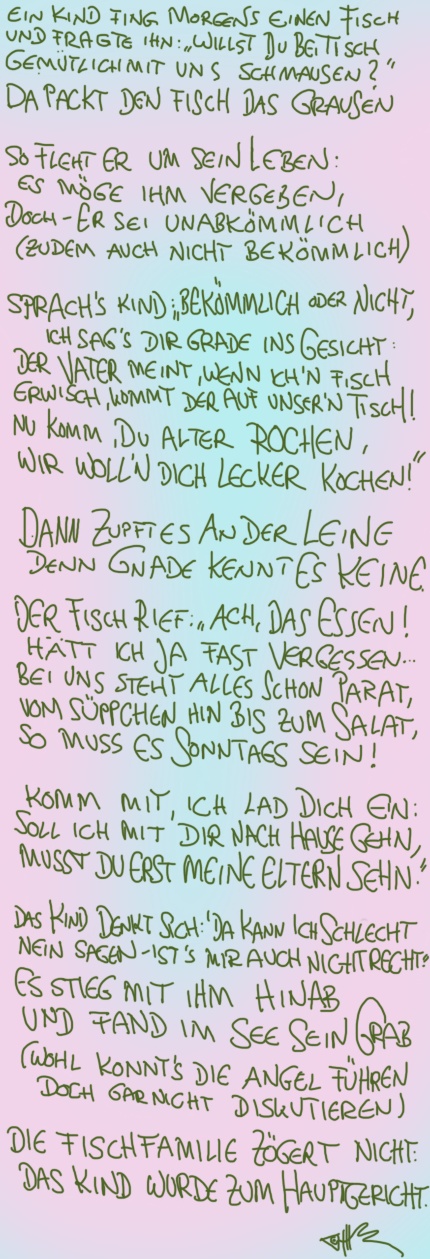 EIN KIND FING MORGENS EINEN FISCH
UND FRAGTE IHN: „WILLST DU BEI TISCH
GEMÜTLICH MIT UNS SCHMAUSEN?"
DA PACKT DEN FISCH DAS GRAUSEN
SO FLEHT ER UM SEIN LEBEN:
ES MÖGE IHM VERGEBEN,
DOCH - ER SEI UNABKÖMMLICH
(ZUDEM AUCH NICHT BEKÖMMLICH)
SPRACH'S KIND: „BEKÖMMLICH ODER NICHT,
ICH SAG'S DIR GRADE INS GESICHT:
DER VATER MEINT, WENN ICH'N FISCH
ERWISCH, KOMMT DER AUF UNSER'N TISCH!
NU KOMM, DU ALTER ROCHEN,
WIR WOLL'N DICH LECKER KOCHEN!"
DANN ZUPFT ES AN DER LEINE
DENN GNADE KENNT ES KEINE.
DER FISCH RIEF: „ACH, DAS ESSEN!
HÄTT ICH JA FAST VERGESSEN...
BEI UNS STEHT ALLES SCHON PARAT,
VOM SÜPPCHEN HIN BIS ZUM SALAT,
SO MUSS ES SONNTAGS SEIN!
KOMM MIT, ICH LAD DICH EIN:
SOLL ICH MIT DIR NACH HAUSE GEHN,
MUSST DU ERST MEINE ELTERN SEHN."
DAS KIND DENKT SICH: 'DA KANN ICH SCHLECHT
NEIN SAGEN - IST'S MIR AUCH NICHT RECHT!'
ES STIEG MIT IHM HINAB
UND FAND IM SEE SEIN GRAB
(WOHL KONNT'S DIE ANGEL FÜHREN
DOCH GAR NICHT DISKUTIEREN)
DIE FISCHFAMILIE ZÖGERT NICHT:
DAS KIND WURDE ZUM HAUPTGERICHT.